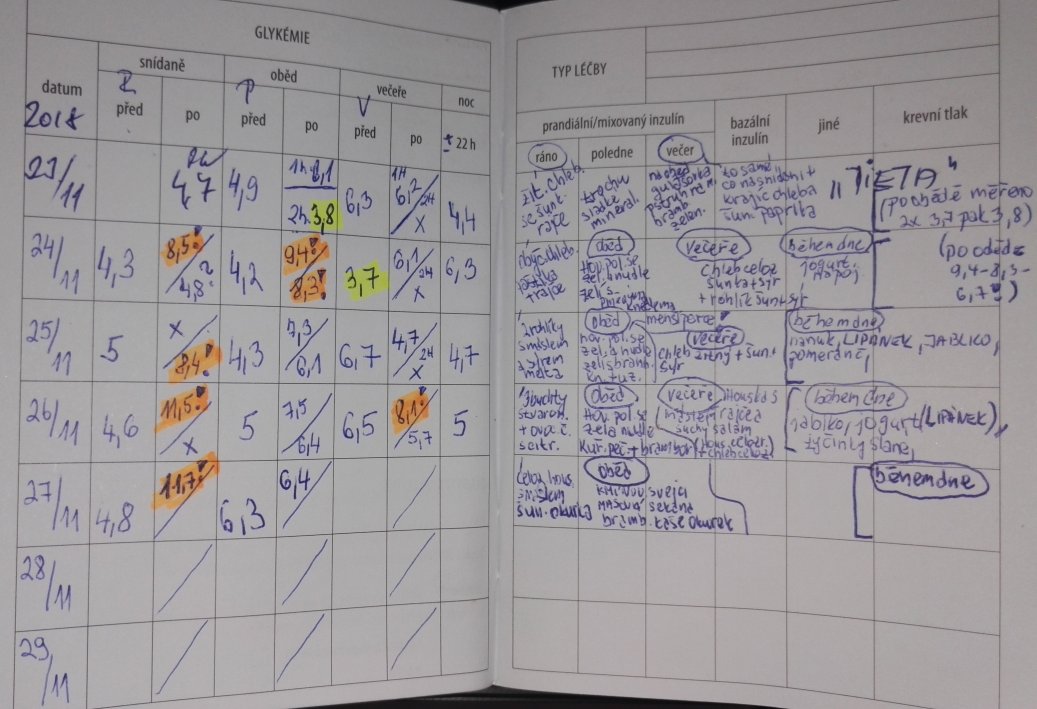 GLYKÉMIE
datum
snídaně
oběd
večeře
noc
R
P
V
2018
před
po
před
po
před
po
± 22 h
23/11
4,7
4,9
1h. 8,1
2h. 3,8
6,3
1H
6,2/2H
x
4,4
24/11
4,3
8,5!
4,8?
4,2
9,4!
8,3!
3,7
6,1/2H
x
6,3
25/11
5
x
8,4!
4,3
7,3
6,1
6,7
4,7/2H
x
4,7
26/11
4,6
11,5!
x
5
7,5
6,4
6,5
8,1!
5,7
5
27/11
4,8
11,7!
6,3
6,4
28/11
29/11
TYP LÉČBY
prandiální/mixovaný inzulín
bazální
inzulín
jiné
krevní tlak
ráno
poledne
večer
žit. chleb.
se šunk.
trochu
sladké
minerál.
guláš
bramb.
zelen.
to samé
co na snídani +
krajíc chleba
šun. paprika
"DIETA"
(po obědě měřeno
2x 3,7 pak 3,8)
oběd
Hov. pol. se
zel. a nudle
večeře
chleb celoz
šunka + sýr
+ rohlík šun + sýr
během dne
jogurt.
nápoj
(po obědě
9,4-8,3-
6,7!)
2 rohlíky
s máslem
a sýrem
oběd
menší porce!
hov. pol. se
zel. a nudle
kn. + uz.
večeře
chleb žitný + šun +
sýr
během dne
nanuk, LIPÁNEK, JABLKO,
pomeranč,
buchty
s tvaroh.
+ ovoc. č.
s citr.
oběd
Hov. pol. se
zel a nudle
kuř. peč. + brambor
večeře
Houska s
rajčea
suchý salám
(hous. celozr.)
+ chleb celoz
během dne
jablko, jogurt (LIPÁNEK),
tyčinky slané,
celoz. hous.
s máslem
šun. okurka
oběd
sekaná
bramb. kaše okurek
během dne